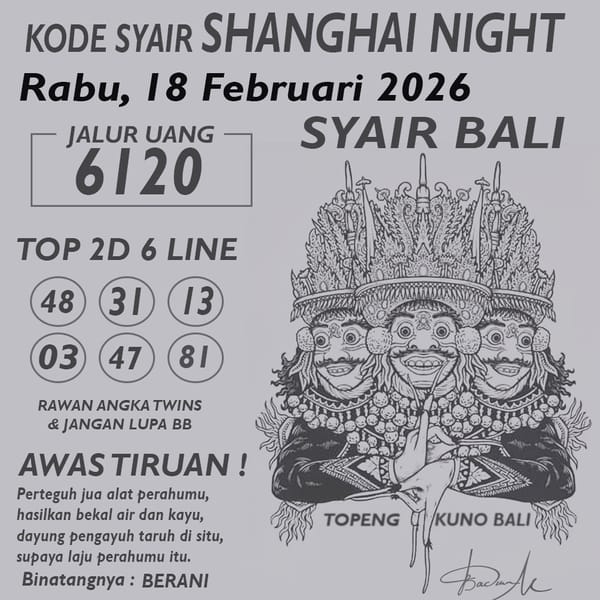 KODE SYAIR SHANGHAI NIGHT
Rabu, 18 Februari 2026
JALUR UANG
6120
SYAIR BALI
TOP 2D 6 LINE
48 31 13
03 47 81
RAWAN ANGKA TWINS
& JANGAN LUPA BB
AWAS TIRUAN !
Perteguh jua alat perahumu,
hasilkan bekal air dan kayu,
dayung pengayuh taruh di situ,
supaya laju perahumu itu.
Binatangnya : BERANI
TOPENG KUNO BALI